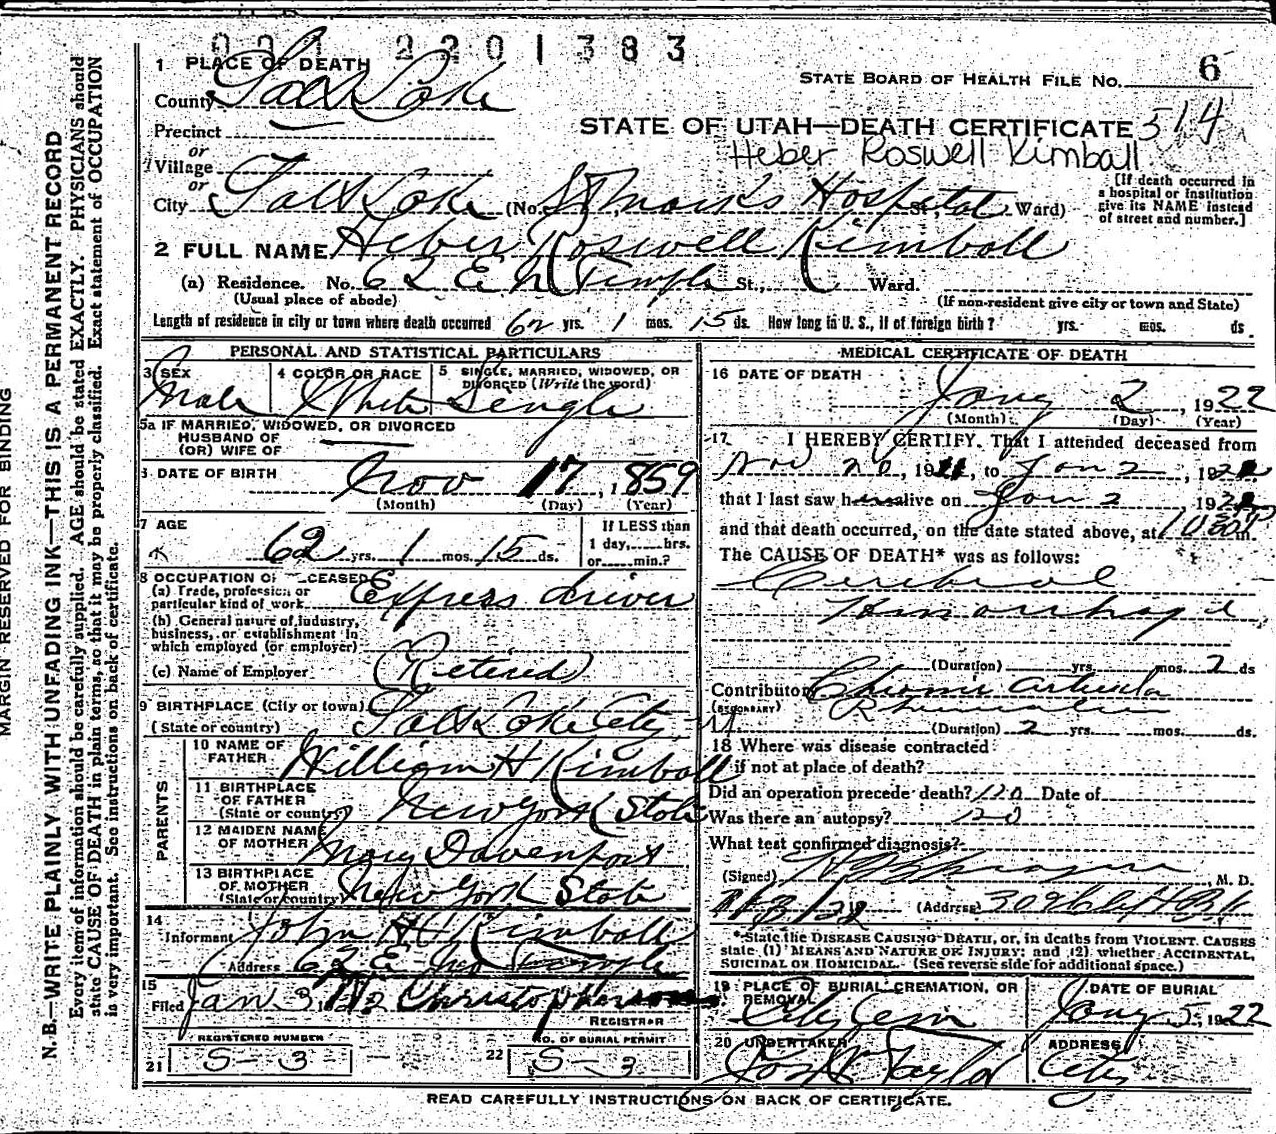 2201383
1 PLACE OF DEATH
County Salt Lake
STATE BOARD OF HEALTH FILE No. 6
Precinct
STATE OF UTAH—DEATH CERTIFICATE 514
or
Heber Roswell Kimball
Village
or
City Salt Lake (No. St Marks Hospital St., Ward)
[If death occurred in
a hospital or institution
give its NAME instead
of street and number.]
2 FULL NAME Heber Roswell Kimball
(a) Residence. No. 62 E N Temple St., Ward.
(Usual place of abode) (If non-resident give city or town and State)
Length of residence in city or town where death occurred 62 yrs. 1 mos. 15 ds. How long in U. S., if of foreign birth? yrs. mos. ds.
PERSONAL AND STATISTICAL PARTICULARS
3 SEX
Male
4 COLOR OR RACE
White
5 SINGLE, MARRIED, WIDOWED, OR
DIVORCED (Write the word)
Single
5a IF MARRIED, WIDOWED, OR DIVORCED
HUSBAND OF
(OR) WIFE OF
6 DATE OF BIRTH
Nov 17, 1859
(Month) (Day) (Year)
7 AGE
62 yrs. 1 mos. 15 ds.
If LESS than
1 day, hrs.
or min.?
8 OCCUPATION OF CEASED
(a) Trade, profession or
particular kind of work Express driver
(b) General nature of industry,
business, or establishment in
which employed (or employer)
(c) Name of Employer (Retired)
9 BIRTHPLACE (City or town) Salt Lake City
(State or country)
PARENTS
10 NAME OF
FATHER William H Kimball
11 BIRTHPLACE
OF FATHER
(State or country) New York State
12 MAIDEN NAME
OF MOTHER Mary Davenport
13 BIRTHPLACE
OF MOTHER
(State or country) New York State
14
Informant John H Kimball
Address 62 E No Temple
15
Filed Jan 3, Christopherson
REGISTRAR
REGISTERED NUMBER
21 S-3
NO. OF BURIAL PERMIT
22 S-3
MEDICAL CERTIFICATE OF DEATH
16 DATE OF DEATH
Jany 2, 1922
(Month) (Day) (Year)
17 I HEREBY CERTIFY, That I attended deceased from
Nov 20, 1921, to Jan 2, 1922
that I last saw h alive on Jan 2 1922
and that death occurred, on the date stated above, at m.
The CAUSE OF DEATH* was as follows:
Cerebral
Hemorrhage
(Duration) yrs. mos. 2 ds
Contributory Chronic articular
(SECONDARY) Rhumatism
(Duration) 2 yrs. mos. ds.
18 Where was disease contracted
if not at place of death?
Did an operation precede death? no Date of
Was there an autopsy? no
What test confirmed diagnosis?
(Signed) , M. D.
(Address)
*State the DISEASE CAUSING DEATH, or, in deaths from VIOLENT CAUSES
state (1) MEANS AND NATURE OF INJURY; and (2) whether ACCIDENTAL,
SUICIDAL OR HOMICIDAL. (See reverse side for additional space.)
19 PLACE OF BURIAL, CREMATION, OR
REMOVAL
City Cem
DATE OF BURIAL
Jany 5, 1922
20 UNDERTAKER
Jos Wm Taylor
ADDRESS
City
READ CAREFULLY INSTRUCTIONS ON BACK OF CERTIFICATE.
MARGIN RESERVED FOR BINDING
N. B.—WRITE PLAINLY, WITH UNFADING INK—THIS IS A PERMANENT RECORD
Every item of information should be carefully supplied. AGE should be stated EXACTLY. PHYSICIANS should
state CAUSE OF DEATH in plain terms, so that it may be properly classified. Exact statement of OCCUPATION
is very important. See instructions on back of certificate.